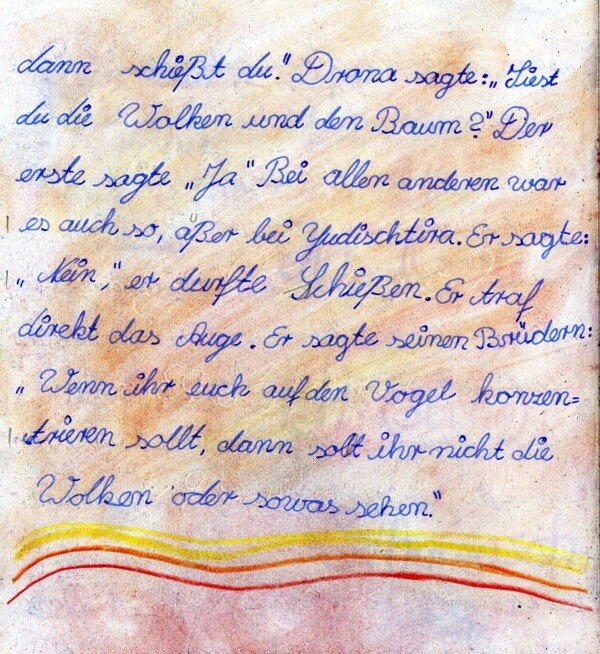 dann schießt du." Drona sagte: „Siest
du die Wolken und den Baum?" Der
erste sagte „Ja" Bei allen anderen war
es auch so, aßer bei Yudischtira. Er sagte:
„Nein," er durfte Schießen. Er traf
direkt das Auge. Er sagte seinen Brüdern:
„Wenn ihr euch auf den Vogel konzen=
trieren sollt, dann solt ihr nicht die
Wolken oder sowas sehen."